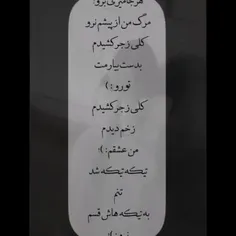 هرجا میری برو؛
مرگ من از پیشم نرو
کلی زجر کشیدم
بدست بیارمت
تورو : )
کلی زجر کشیدم
زخم دیدم
من عشقم : )؛
تیکه تیکه شد
تنم
به تیکه هاش قسم